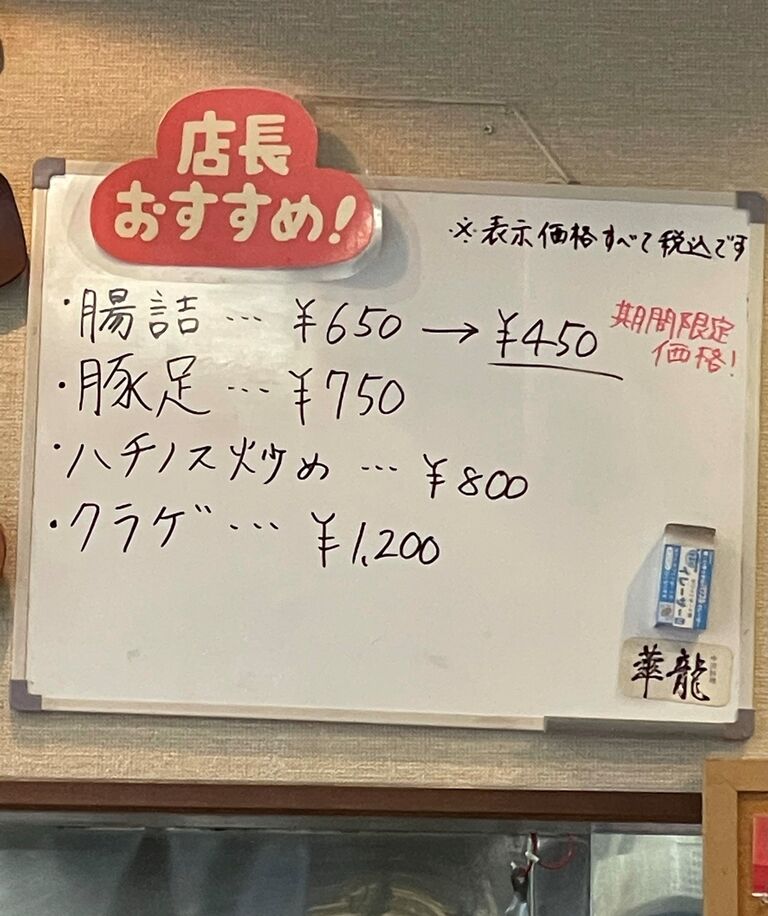 店長
おすすめ!
※表示価格すべて税込です
・腸詰… ¥650 → ¥450 期間限定
価格!
・豚足… ¥750
・ハチノス炒め… ¥800
・クラゲ… ¥1,200
イレーザー
華龍